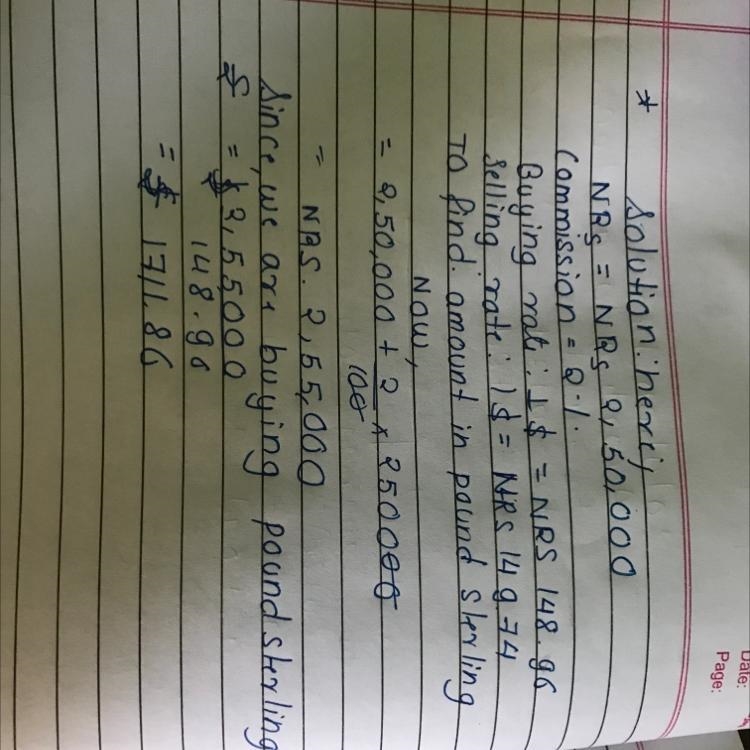 Date:
Page:
* Solution: here,
NRs = NRs 2,50,000
Commission = 2%.
Buying rate: 1 $ = NRS 148.96
Selling rate: 1$ = NRS 149.74
To find: amount in pound sterling
Now,
= 2,50,000 + 2/100 × 250000
= NRS. 2,55,000
Since, we are buying pound sterling
= $ 2,55000
148.96
= $ 1711.86